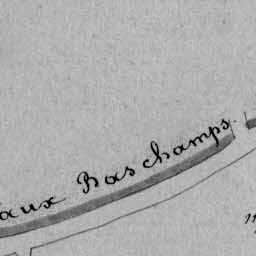 aux Bas champs.